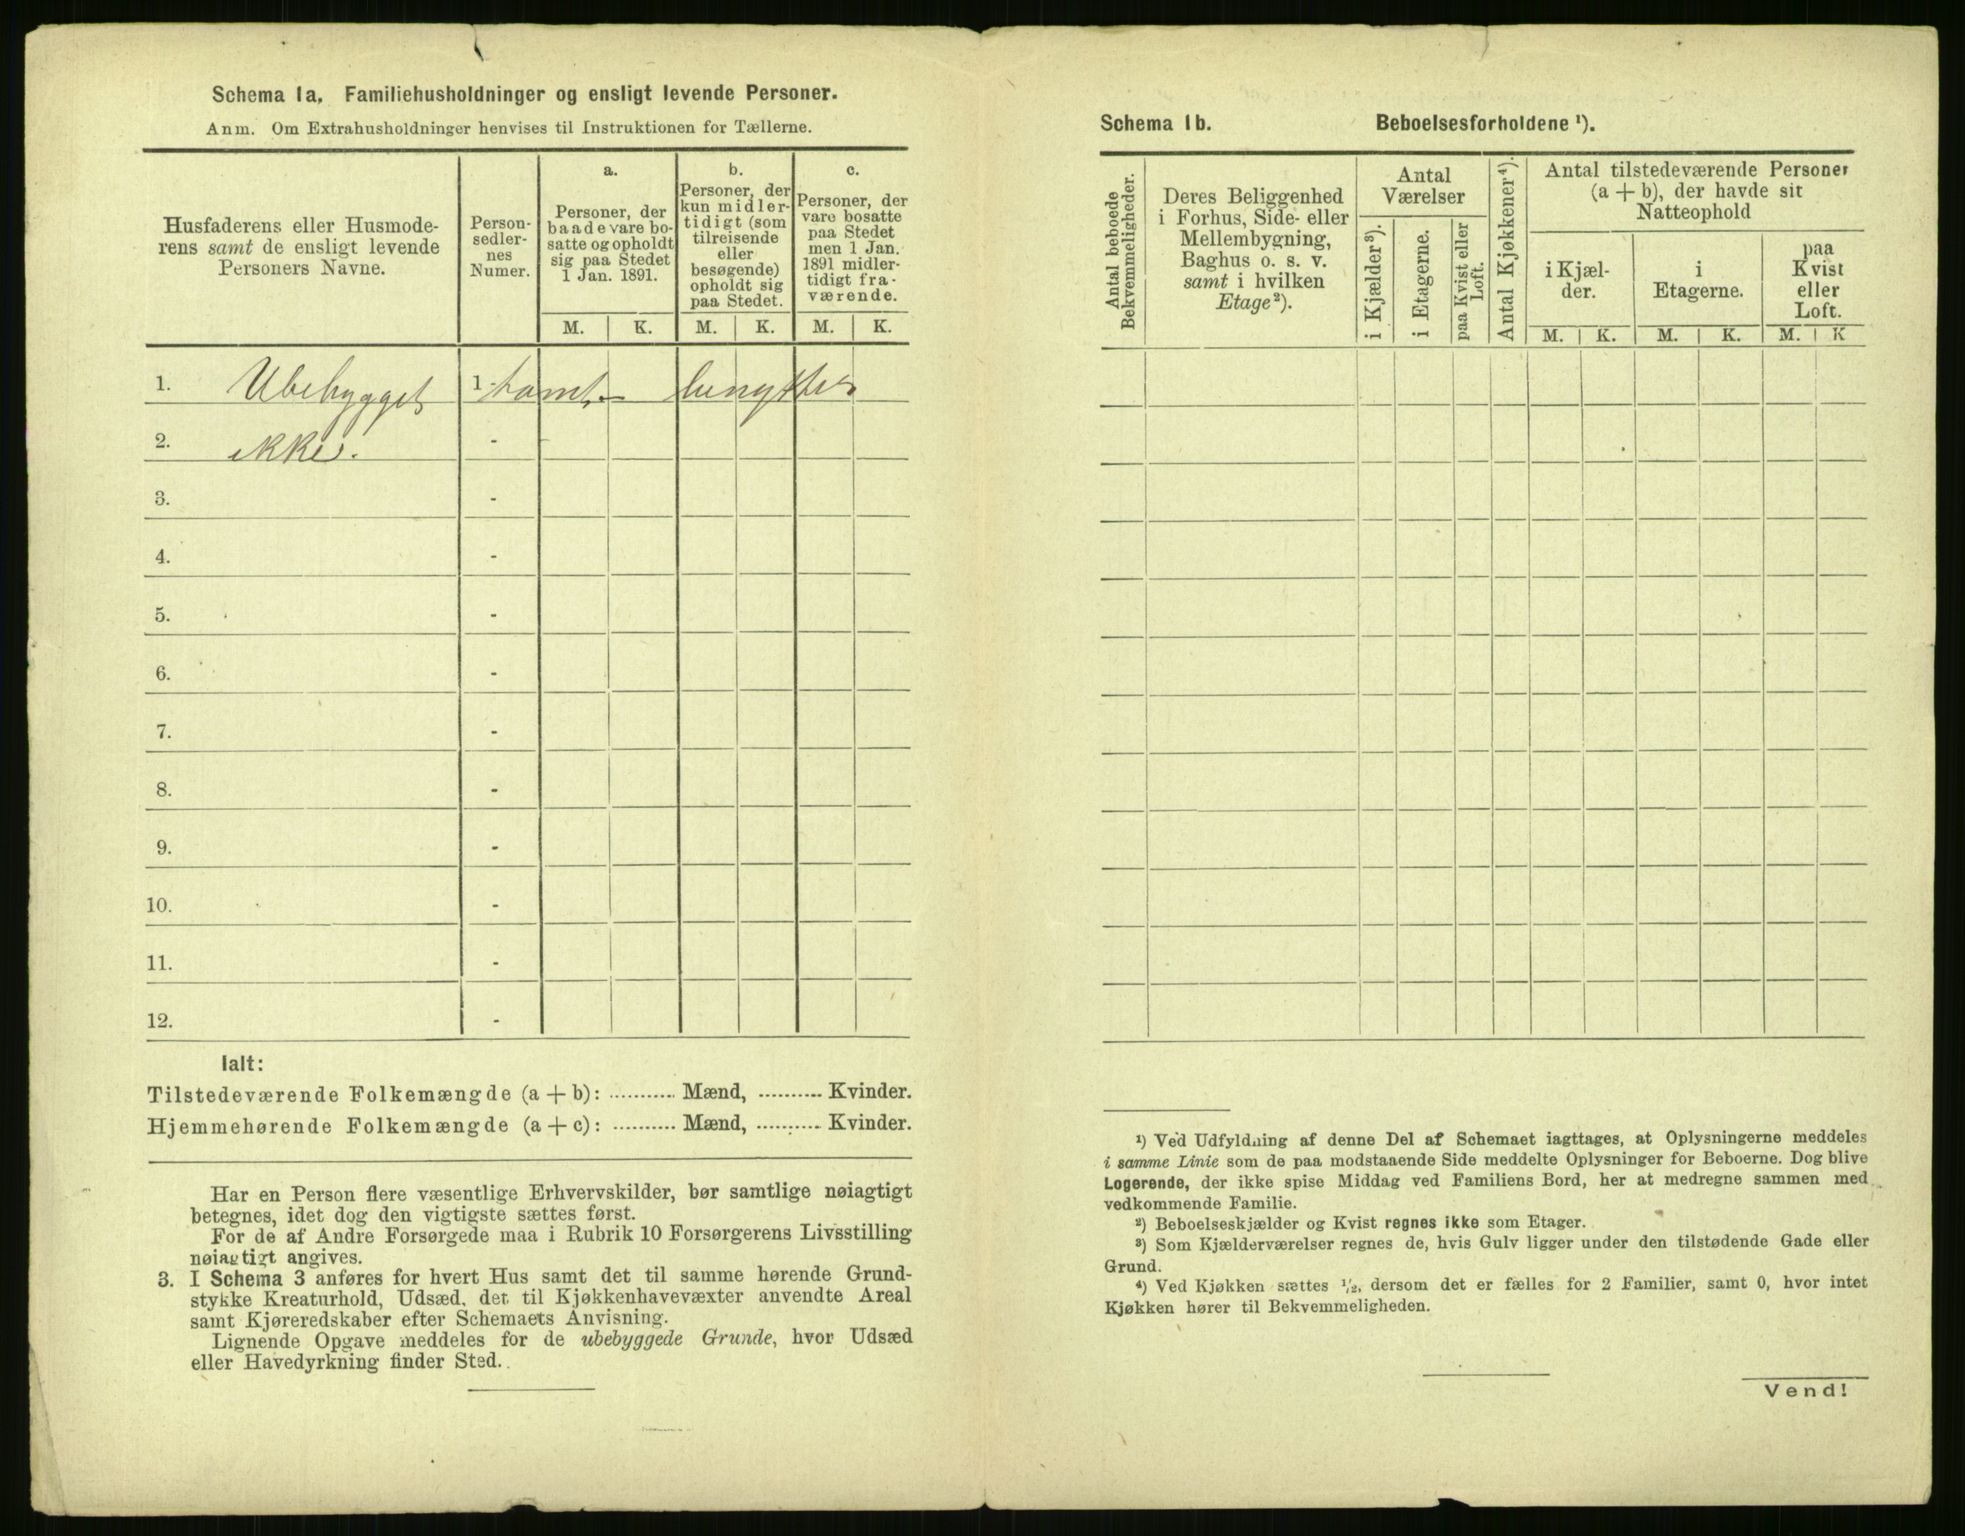 Schema 1a. Familiehusholdninger og ensligt levende Personer.
Anm. Om Extrahusholdninger henvises til Instruktionen for Tællerne.
Husfaderens eller Husmode-
rens samt de ensligt levende
Personers Navne.
Person-
sedler-
nes
Numer.
a.
Personer, der
baade vare bo-
satte og opholdt
sig paa Stedet
1 Jan. 1891.
b.
Personer, der
kun midler-
tidigt (som
tilreisende
eller
besøgende)
opholdt sig
paa Stedet.
c.
Personer, der
vare bosatte
paa Stedet
men 1 Jan.
1891 midler-
tidigt fra-
værende.
M. K. M. K. M. K.
1. Ubebygget 1 - tomt - benyttes
2. ikke. -
3. -
4. -
5. -
6. -
7. -
8. -
9. -
10. -
11. -
12. -
Ialt:
Tilstedeværende Folkemængde (a + b): ........... Mænd, ........... Kvinder.
Hjemmehørende Folkemængde (a + c): ........... Mænd, ........... Kvinder.
Har en Person flere væsentlige Erhvervskilder, bør samtlige nøiagtigt
betegnes, idet dog den vigtigste sættes først.
For de af Andre Forsørgede maa i Rubrik 10 Forsørgerens Livsstilling
nøiagtigt angives.
3. I Schema 3 anføres for hvert Hus samt det til samme hørende Grund-
stykke Kreaturhold, Udsæd, det til Kjøkkenhavevæxter anvendte Areal
samt Kjøreredskaber efter Schemaets Anvisning.
Lignende Opgave meddeles for de ubebyggede Grunde, hvor Udsæd
eller Havedyrkning finder Sted.
Schema 1b. Beboelsesforholdene ¹).
Antal beboede
Bekvemmeligheder.
Deres Beliggenhed
i Forhus, Side- eller
Mellembygning,
Baghus o. s. v.
samt i hvilken
Etage ²).
Antal
Værelser
i Kjælder ³).
i Etagerne.
paa Kvist eller
Loft.
Antal Kjøkkener ⁴).
Antal tilstedeværende Personer
(a + b), der havde sit
Natteophold
i Kjæl-
der.
i
Etagerne.
paa
Kvist
eller
Loft.
M. K. M. K. M. K
¹) Ved Udfyldning af denne Del af Schemaet iagttages, at Oplysningerne meddeles
i samme Linie som de paa modstaaende Side meddelte Oplysninger for Beboerne. Dog blive
Logerende, der ikke spise Middag ved Familiens Bord, her at medregne sammen med
vedkommende Familie.
²) Beboelseskjælder og Kvist regnes ikke som Etager.
³) Som Kjælderværelser regnes de, hvis Gulv ligger under den tilstødende Gade eller
Grund.
⁴) Ved Kjøkken sættes ½, dersom det er fælles for 2 Familier, samt 0, hvor intet
Kjøkken hører til Bekvemmeligheden.
Vend!